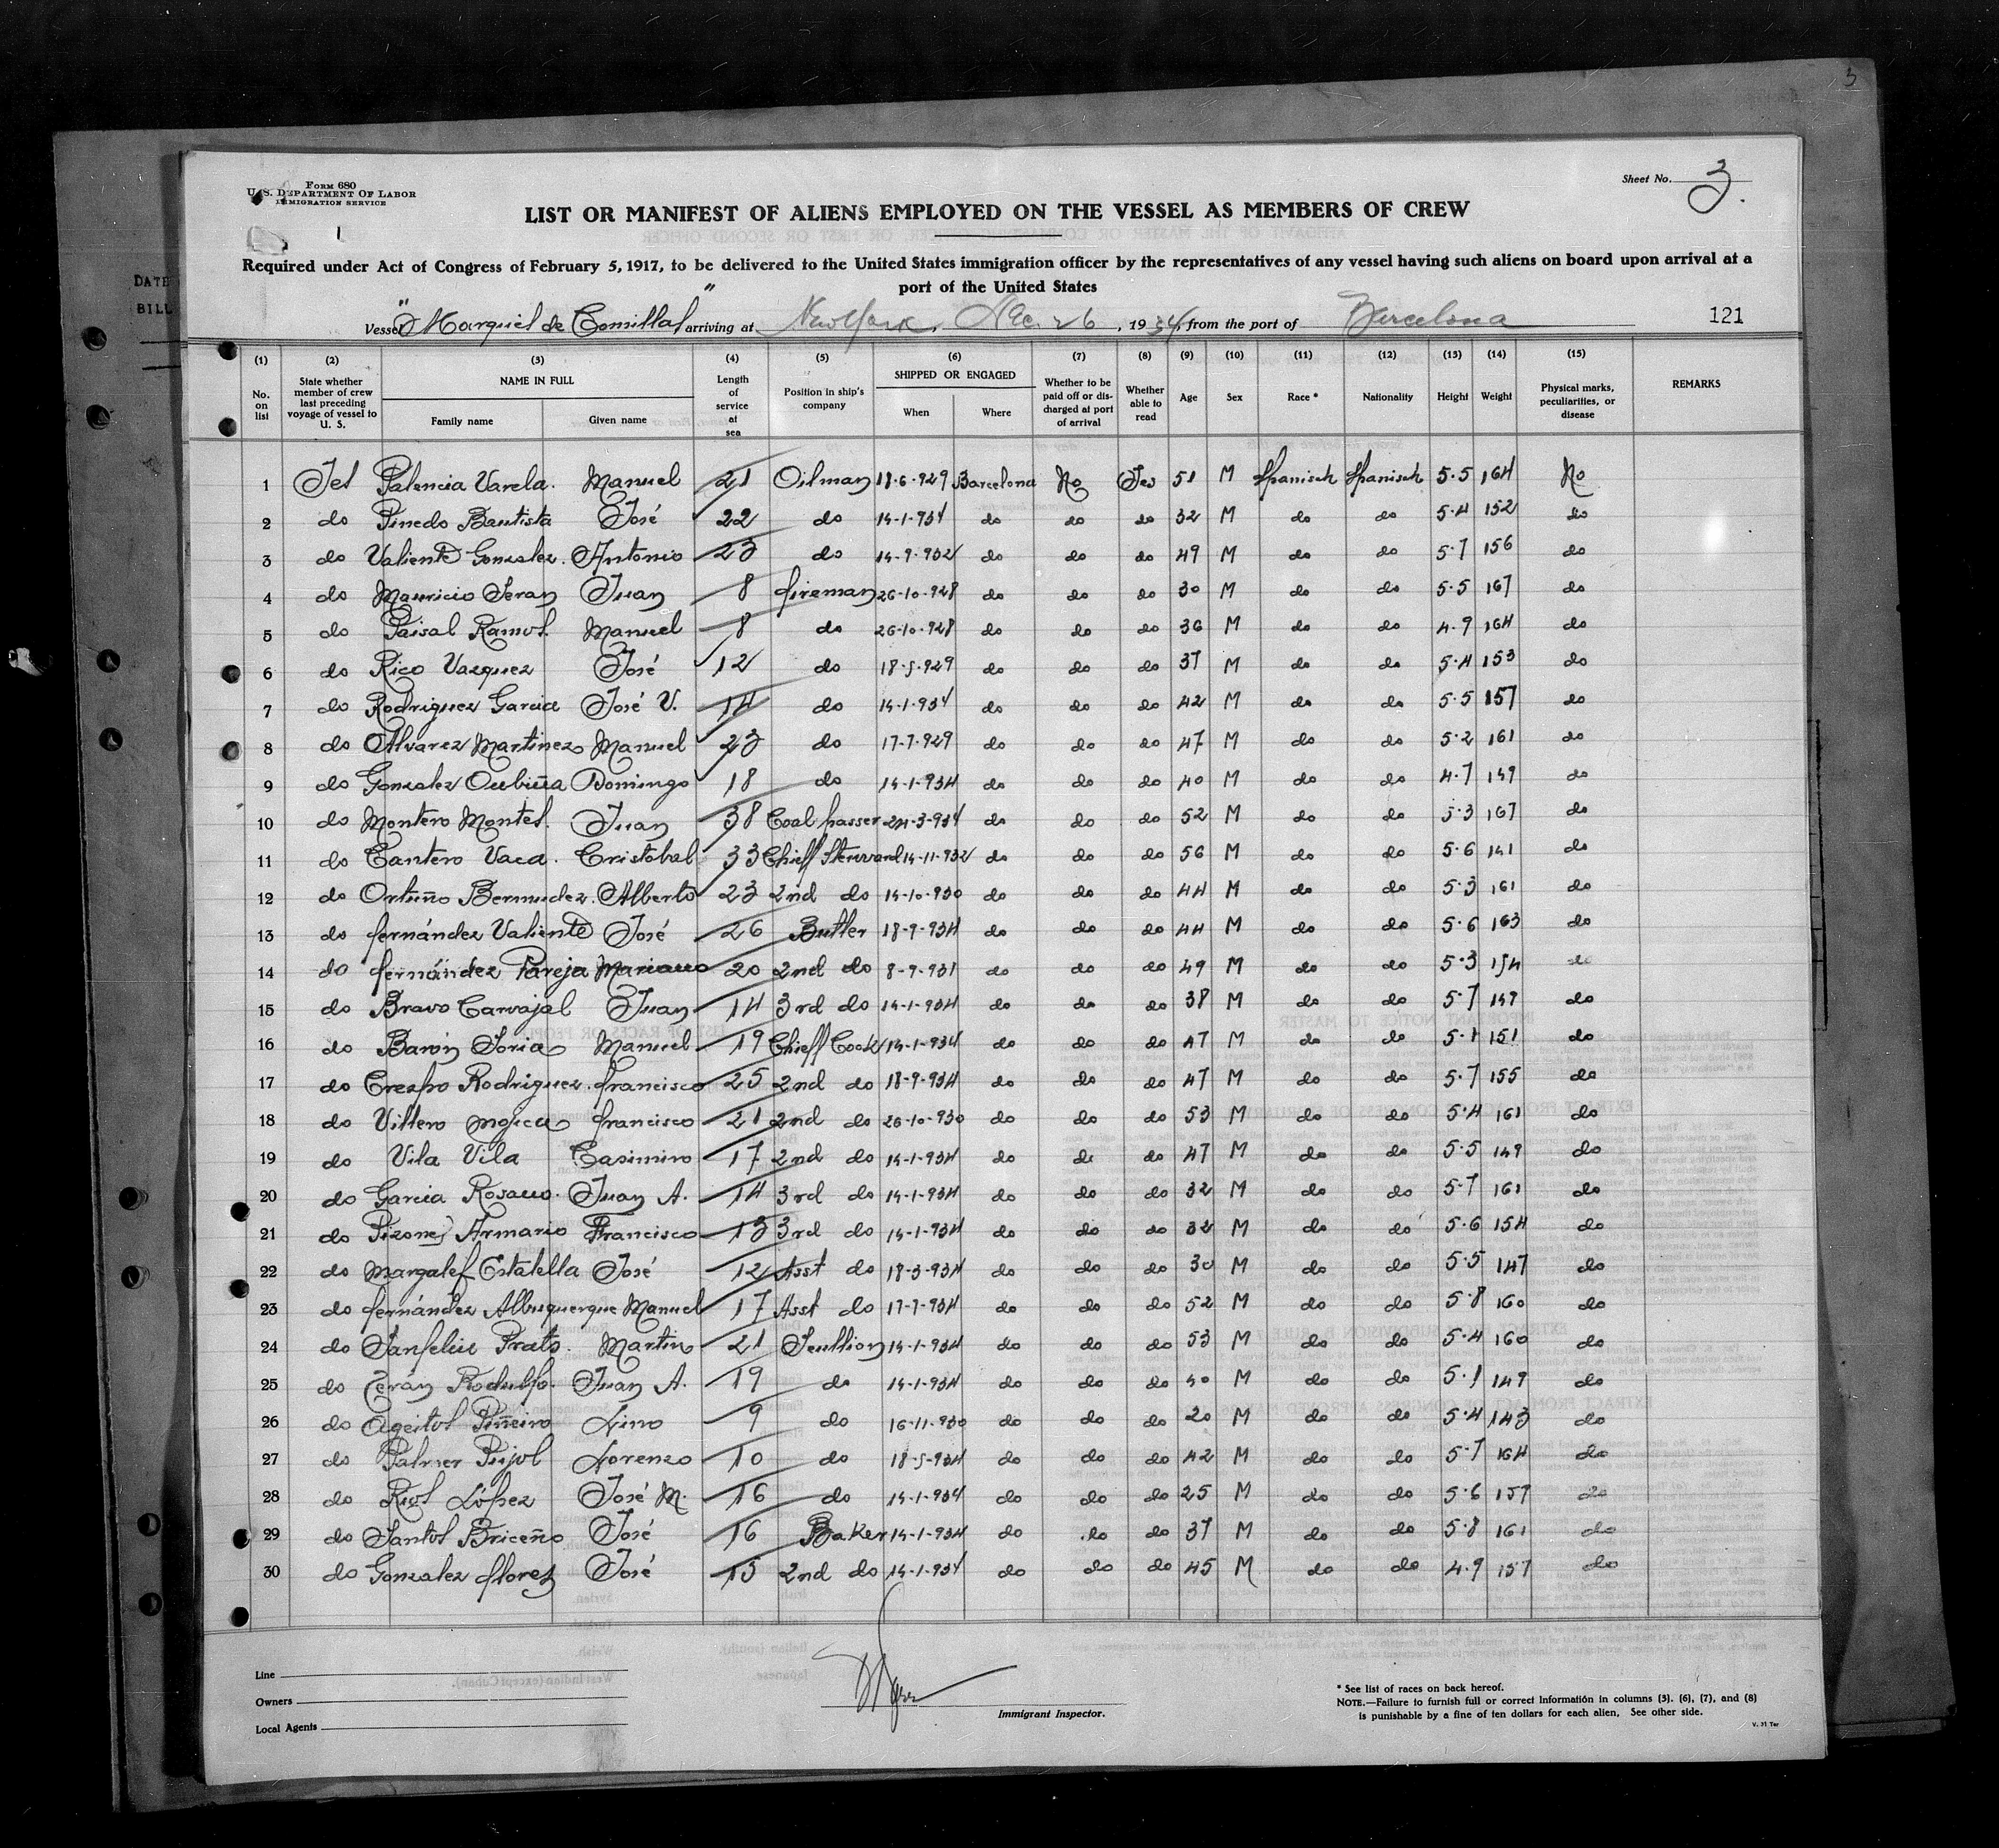 3
DATE
BILL
Form 680
U. S. Department Of Labor
Immigration Service
Sheet No. 3.
LIST OR MANIFEST OF ALIENS EMPLOYED ON THE VESSEL AS MEMBERS OF CREW
1
Required under Act of Congress of February 5, 1917, to be delivered to the United States immigration officer by the representatives of any vessel having such aliens on board upon arrival at a
port of the United States
Vessel "Marques de Comillas" arriving at New York, Dec. 26, 1934, from the port of Barcelona 121
(1) (2) (3) (4) (5) (6) (7) (8) (9) (10) (11) (12) (13) (14) (15)
No. on list State whether member of crew last preceding voyage of vessel to U. S. NAME IN FULL Length of service at sea Position in ship's company SHIPPED OR ENGAGED Whether to be paid off or discharged at port of arrival Whether able to read Age Sex Race * Nationality Height Weight Physical marks, peculiarities, or disease REMARKS
Family name Given name When Where
1 Yes Palencia Varela. Manuel 21 Oilman 18-6-929 Barcelona No Yes 51 M Spanisch Spanisch 5.5 164 No
2 do Pinedo Bautista José 22 do 14-1-934 do do do 32 M do do 5.4 152 do
3 do Valiente Gonzalez. Antonio 23 do 14-9-932 do do do 49 M do do 5.7 156 do
4 do Mauricio Teran Juan 8 fireman 26-10-928 do do do 30 M do do 5.5 167 do
5 do Paisal Ramos. Manuel 8 do 26-10-928 do do do 36 M do do 4.9 164 do
6 do Rico Vazquez José 12 do 18-5-929 do do do 37 M do do 5.4 153 do
7 do Rodriguez Garcia José V. 14 do 14-1-934 do do do 42 M do do 5.5 157 do
8 do Alvarez Martinez Manuel 23 do 17-7-929 do do do 47 M do do 5.2 161 do
9 do Gonzalez Oubiña Domingo 18 do 14-1-934 do do do 40 M do do 4.7 149 do
10 do Montero Montes. Juan 38 Coal passer 24-3-934 do do do 52 M do do 5.3 167 do
11 do Cantero Vaca. Cristobal 33 Chieff Stewward 14-11-932 do do do 56 M do do 5.6 141 do
12 do Ortuño Bermudez. Alberto 23 2nd do 14-10-930 do do do 44 M do do 5.3 161 do
13 do fernández Valiente José 26 Butler 18-9-934 do do do 44 M do do 5.6 163 do
14 do fernández Pareja Mariano 20 2nd do 8-9-931 do do do 49 M do do 5.3 154 do
15 do Bravo Carvajal Juan 14 3rd do 14-1-934 do do do 38 M do do 5.7 149 do
16 do Baron Soria Manuel 19 Chieff Cook 14-1-934 do do do 47 M do do 5.1 151 do
17 do Crespo Rodriguez. francisco 25 2nd do 18-9-934 do do do 47 M do do 5.7 155 do
18 do Villero mojica francisco 21 2nd do 26-10-930 do do do 53 M do do 5.4 161 do
19 do Vila Vila Casimiro 17 2nd do 14-1-934 do do do 47 M do do 5.5 149 do
20 do Garcia Rosano. Juan A. 14 3rd do 14-1-934 do do do 32 M do do 5.7 161 do
21 do Pizones Armario Francisco 13 3rd do 14-1-934 do do do 32 M do do 5.6 154 do
22 do Margalef Estatella José 12 Asst do 18-3-934 do do do 30 M do do 5.5 147 do
23 do fernández Albuquerque Manuel 17 Asst do 17-7-934 do do do 52 M do do 5.8 160 do
24 do Sanfeliu Prats. Martin 21 Scullion 14-1-934 do do do 53 M do do 5.4 160 do
25 do Terán Rodulfo. Juan A. 19 do 14-1-934 do do do 40 M do do 5.1 149 do
26 do Ageitos Piñeiro Lino 9 do 16-11-930 do do do 20 M do do 5.4 143 do
27 do Palmer Pujol Lorenzo 10 do 18-5-934 do do do 42 M do do 5.7 164 do
28 do Rios López José M. 16 do 14-1-934 do do do 25 M do do 5.6 157 do
29 do Santos Briceño José 16 Baker 14-1-934 do do do 37 M do do 5.8 161 do
30 do Gonzalez flores José 15 2nd do 14-1-934 do do do 45 M do do 4.9 157 do
Line
Owners
Local Agents
Immigrant Inspector.
* See list of races on back hereof.
NOTE.—Failure to furnish full or correct information in columns (3), (6), (7), and (8)
is punishable by a fine of ten dollars for each alien. See other side.
V. 31 Ter